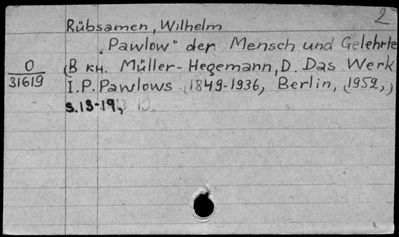 2
Rübsamen, Wilhelm
„Pawlow" der Mensch und Gelehrte
O
31619
(В кн. Müller-Hegemann, D. Das Werk
I.P. Pawlows (1849-1936, Berlin, (1952,)
s.13-19,